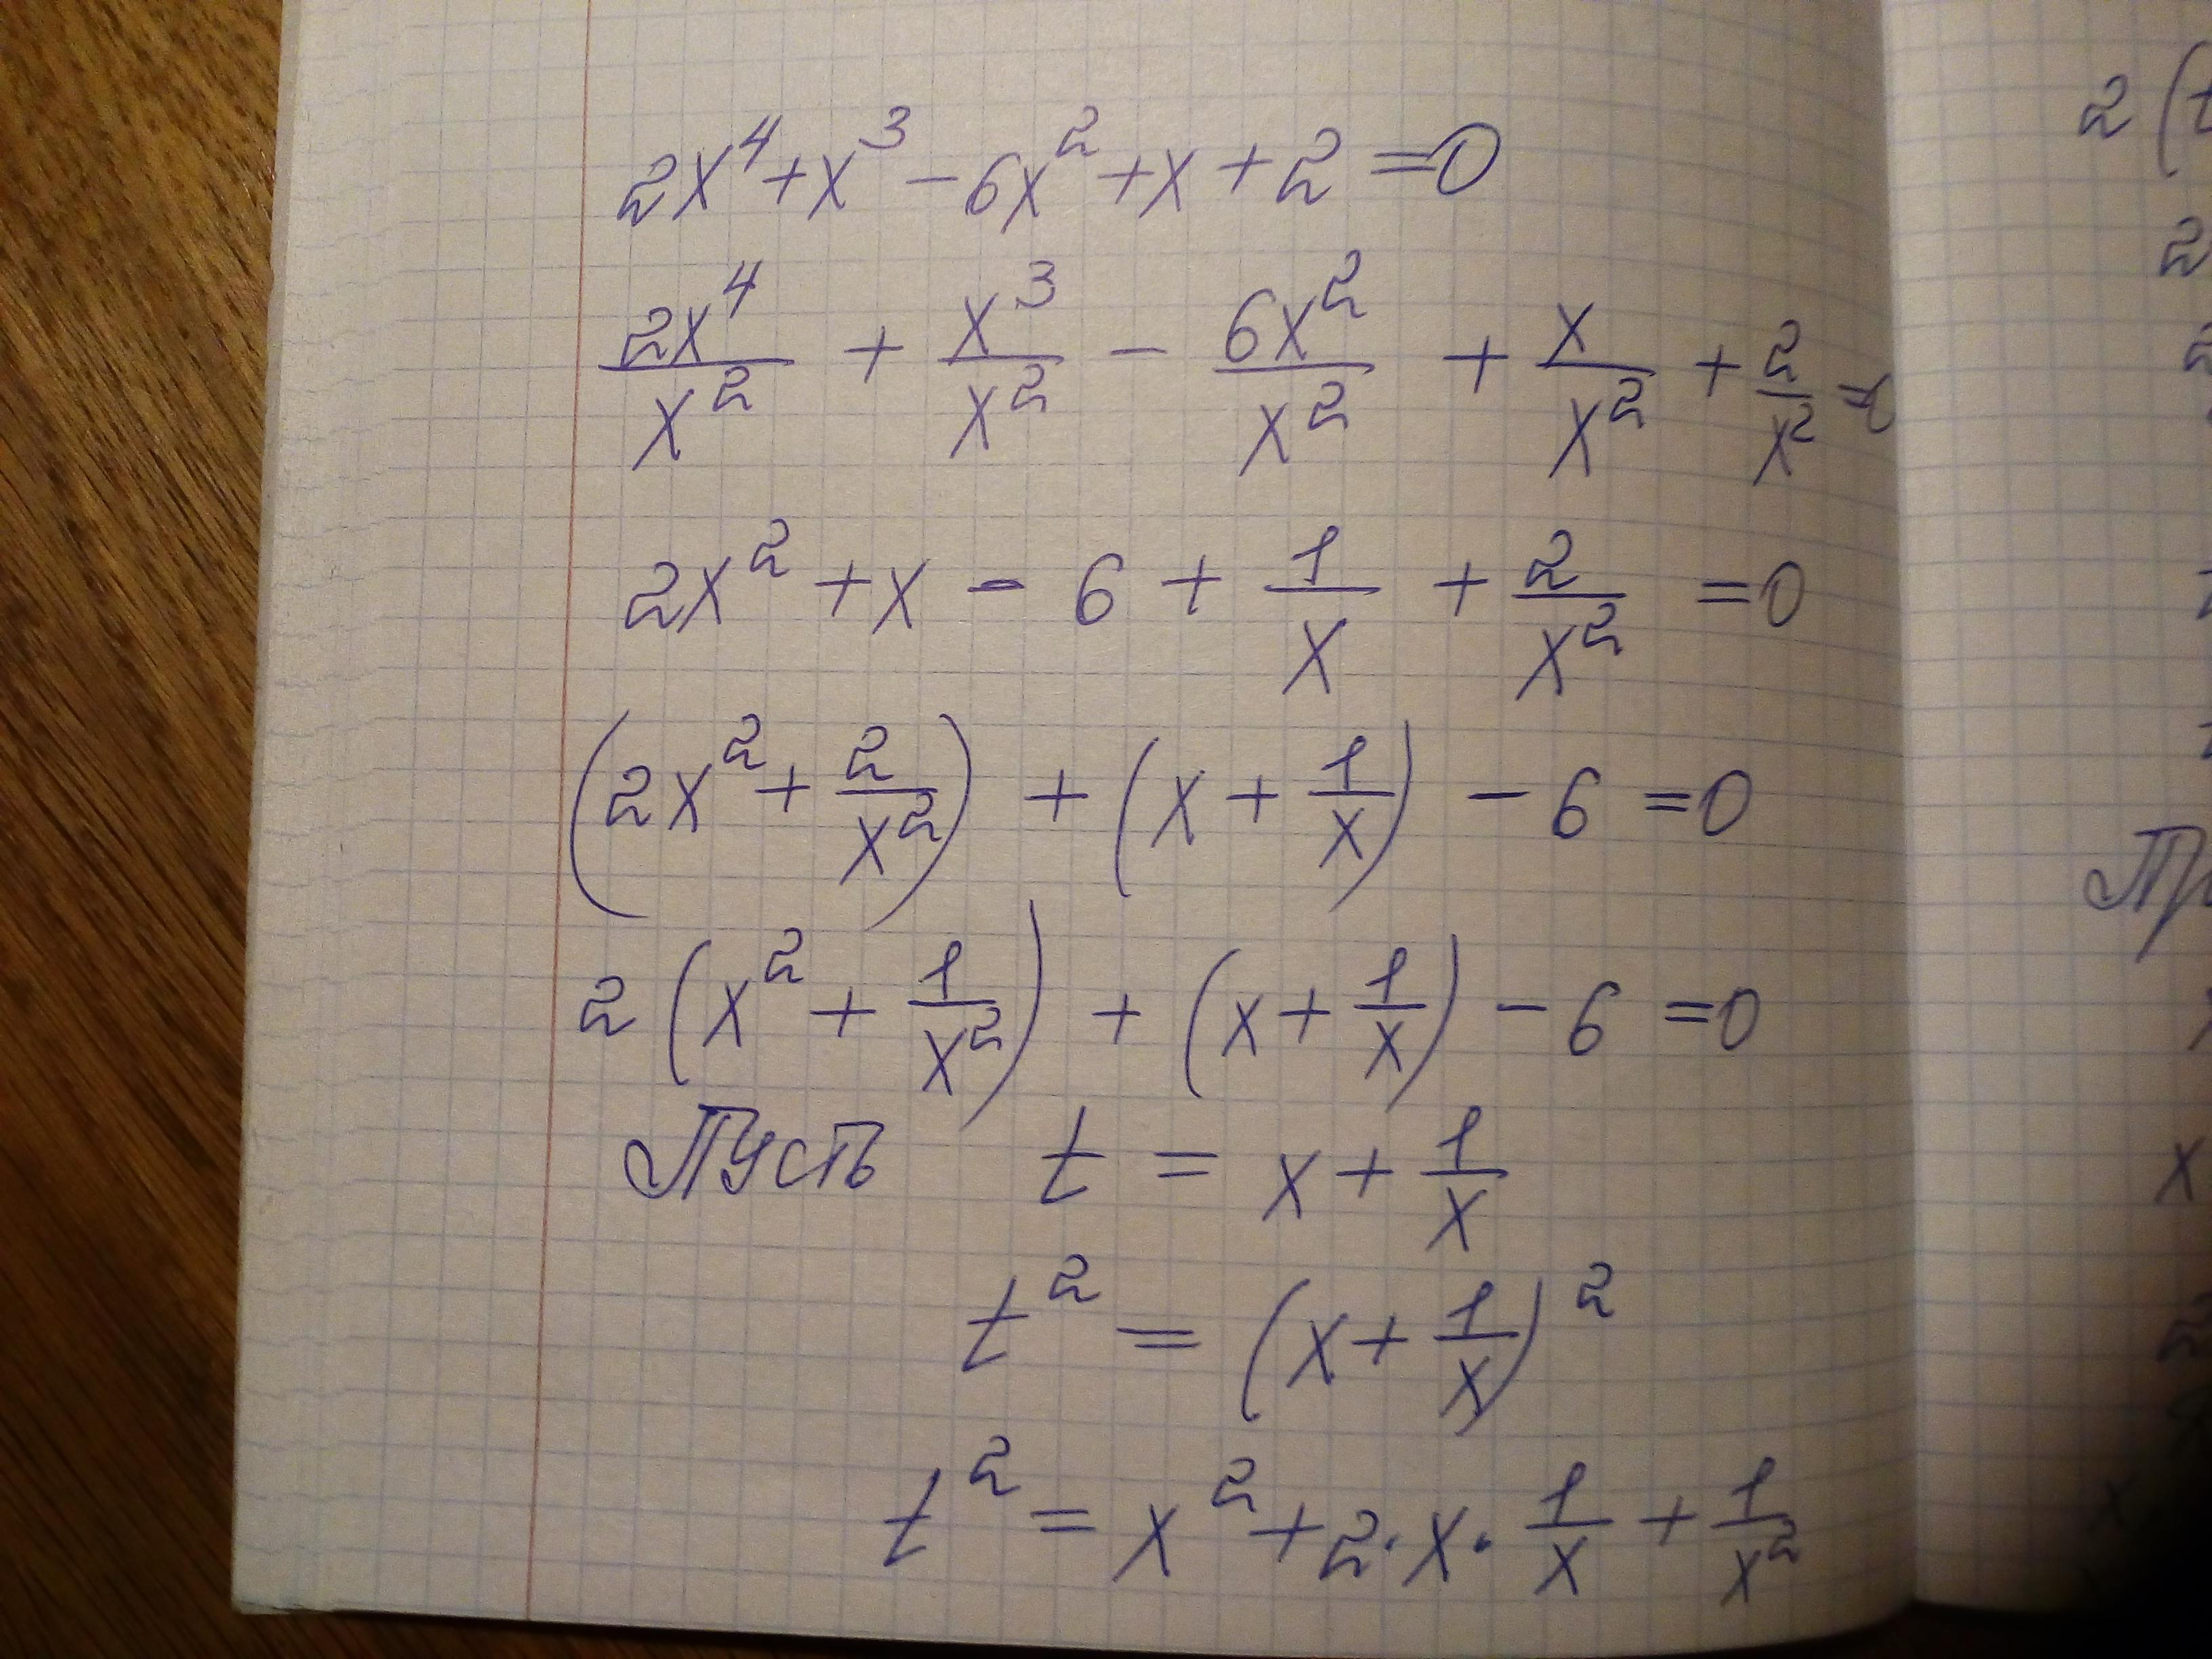 2x⁴+x³-6x²+x+2=0
2x⁴/x² + x³/x² - 6x²/x² + x/x² + 2/x² =
2x²+x-6+1/x+2/x²=0
(2x²+2/x²)+(x+1/x)-6=0
2(x²+1/x²)+(x+1/x)-6=0
Пусть t=x+1/x
t²=(x+1/x)²
t²=x²+2·x·1/x+1/x²
2(
2